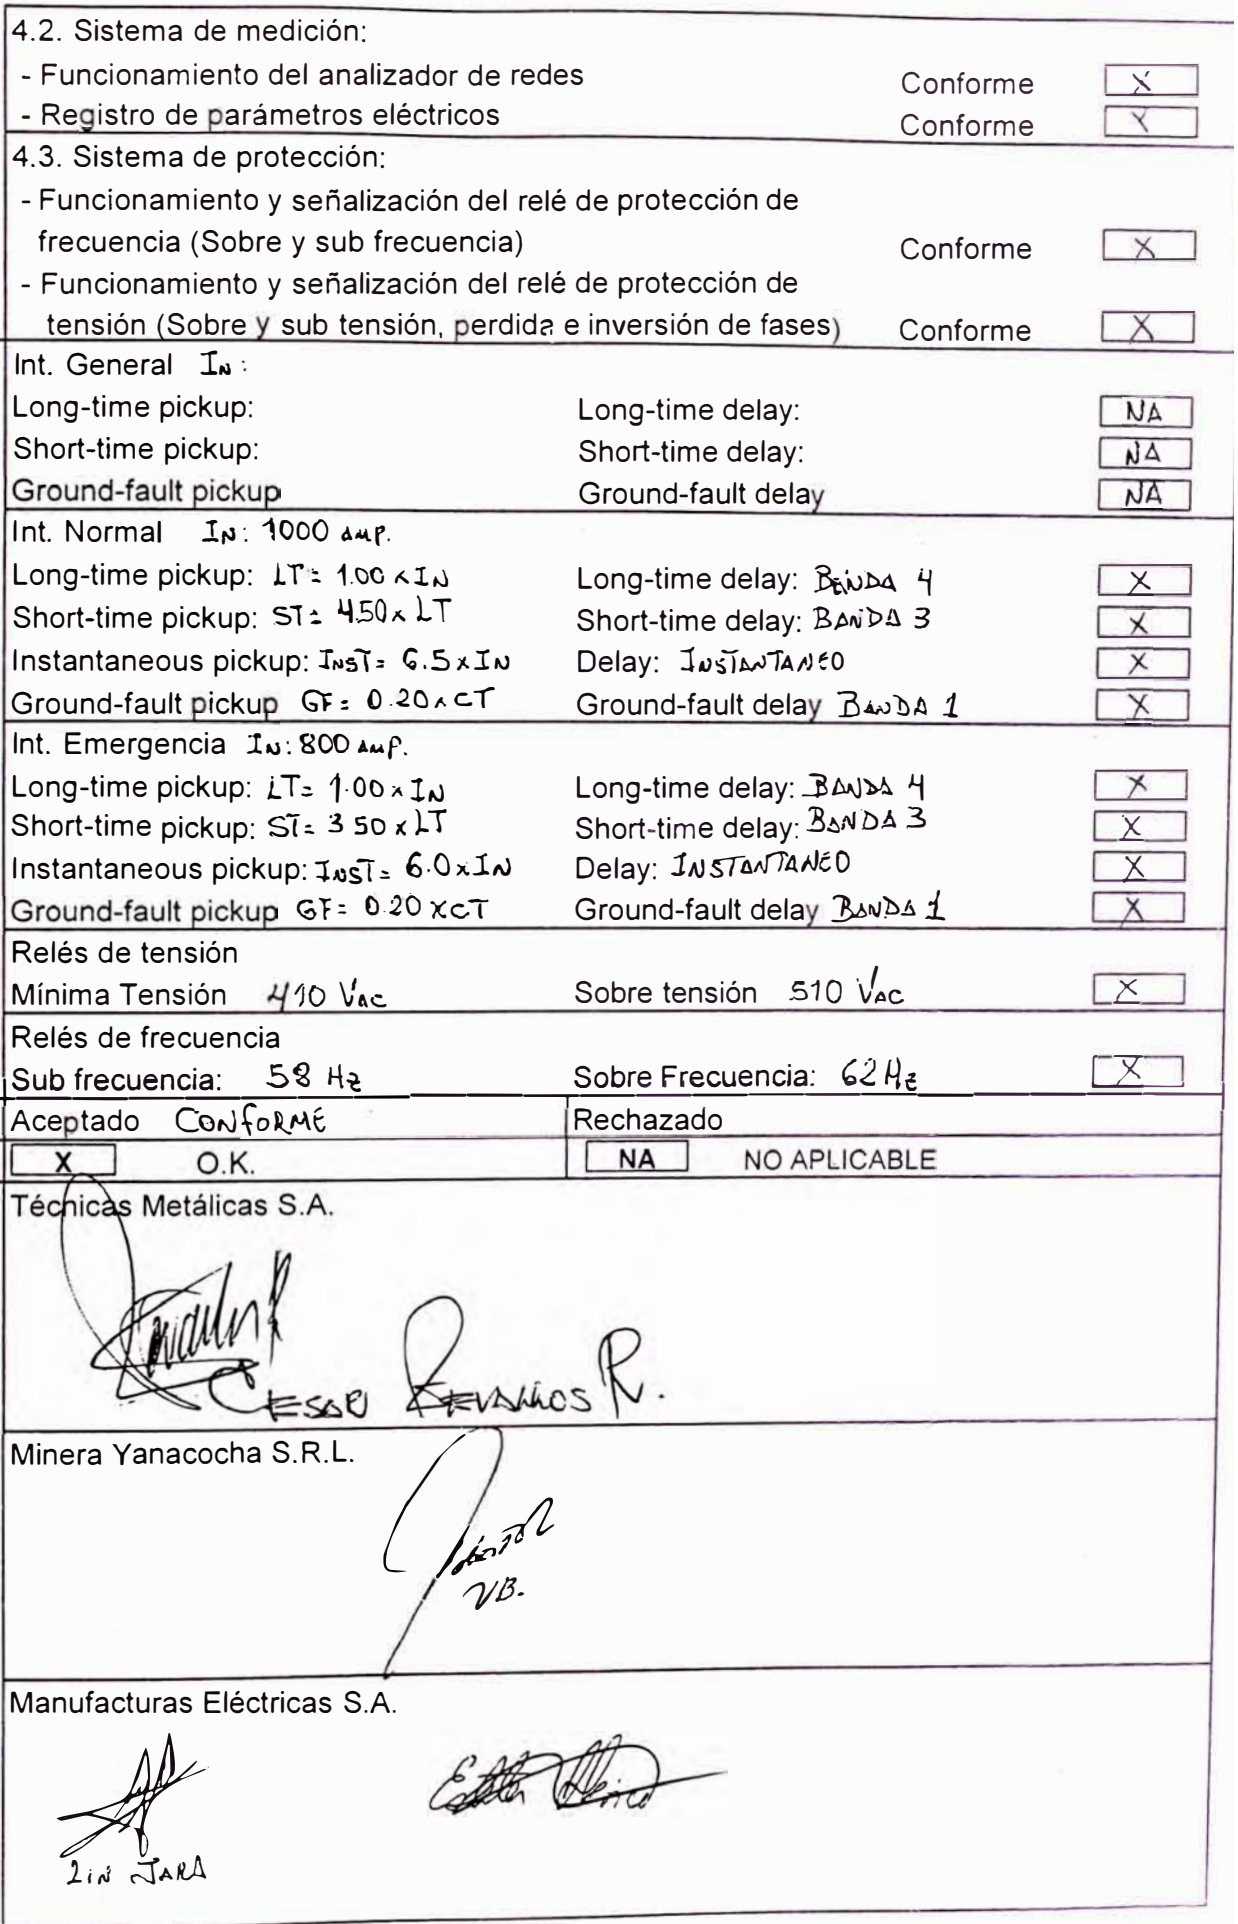 4.2. Sistema de medición:
- Funcionamiento del analizador de redes Conforme X
- Registro de parámetros eléctricos Conforme X
4.3. Sistema de protección:
- Funcionamiento y señalización del relé de protección de
frecuencia (Sobre y sub frecuencia) Conforme X
- Funcionamiento y señalización del relé de protección de
tensión (Sobre y sub tensión, perdida e inversión de fases) Conforme X
Int. General IN:
Long-time pickup: Long-time delay: NA
Short-time pickup: Short-time delay: NA
Ground-fault pickup Ground-fault delay NA
Int. Normal IN: 1000 AMP.
Long-time pickup: LT= 1.00 x IN Long-time delay: BANDA 4 X
Short-time pickup: ST= 4.50 x LT Short-time delay: BANDA 3 X
Instantaneous pickup: INST= 6.5 x IN Delay: INSTANTANEO X
Ground-fault pickup GF= 0.20 x CT Ground-fault delay BANDA 1 X
Int. Emergencia IN: 800 AMP.
Long-time pickup: LT= 1.00 x IN Long-time delay: BANDA 4 X
Short-time pickup: ST= 3 50 x LT Short-time delay: BANDA 3 X
Instantaneous pickup: INST= 6.0 x IN Delay: INSTANTANEO X
Ground-fault pickup GF= 0.20 x CT Ground-fault delay BANDA 1 X
Relés de tensión
Mínima Tensión 410 VAC Sobre tensión 510 VAC X
Relés de frecuencia
Sub frecuencia: 58 Hz Sobre Frecuencia: 62 Hz X
Aceptado CONFORME Rechazado
X O.K. NA NO APLICABLE
Técnicas Metálicas S.A.
R.
Minera Yanacocha S.R.L.
VB.
Manufacturas Eléctricas S.A.
LIN JARA